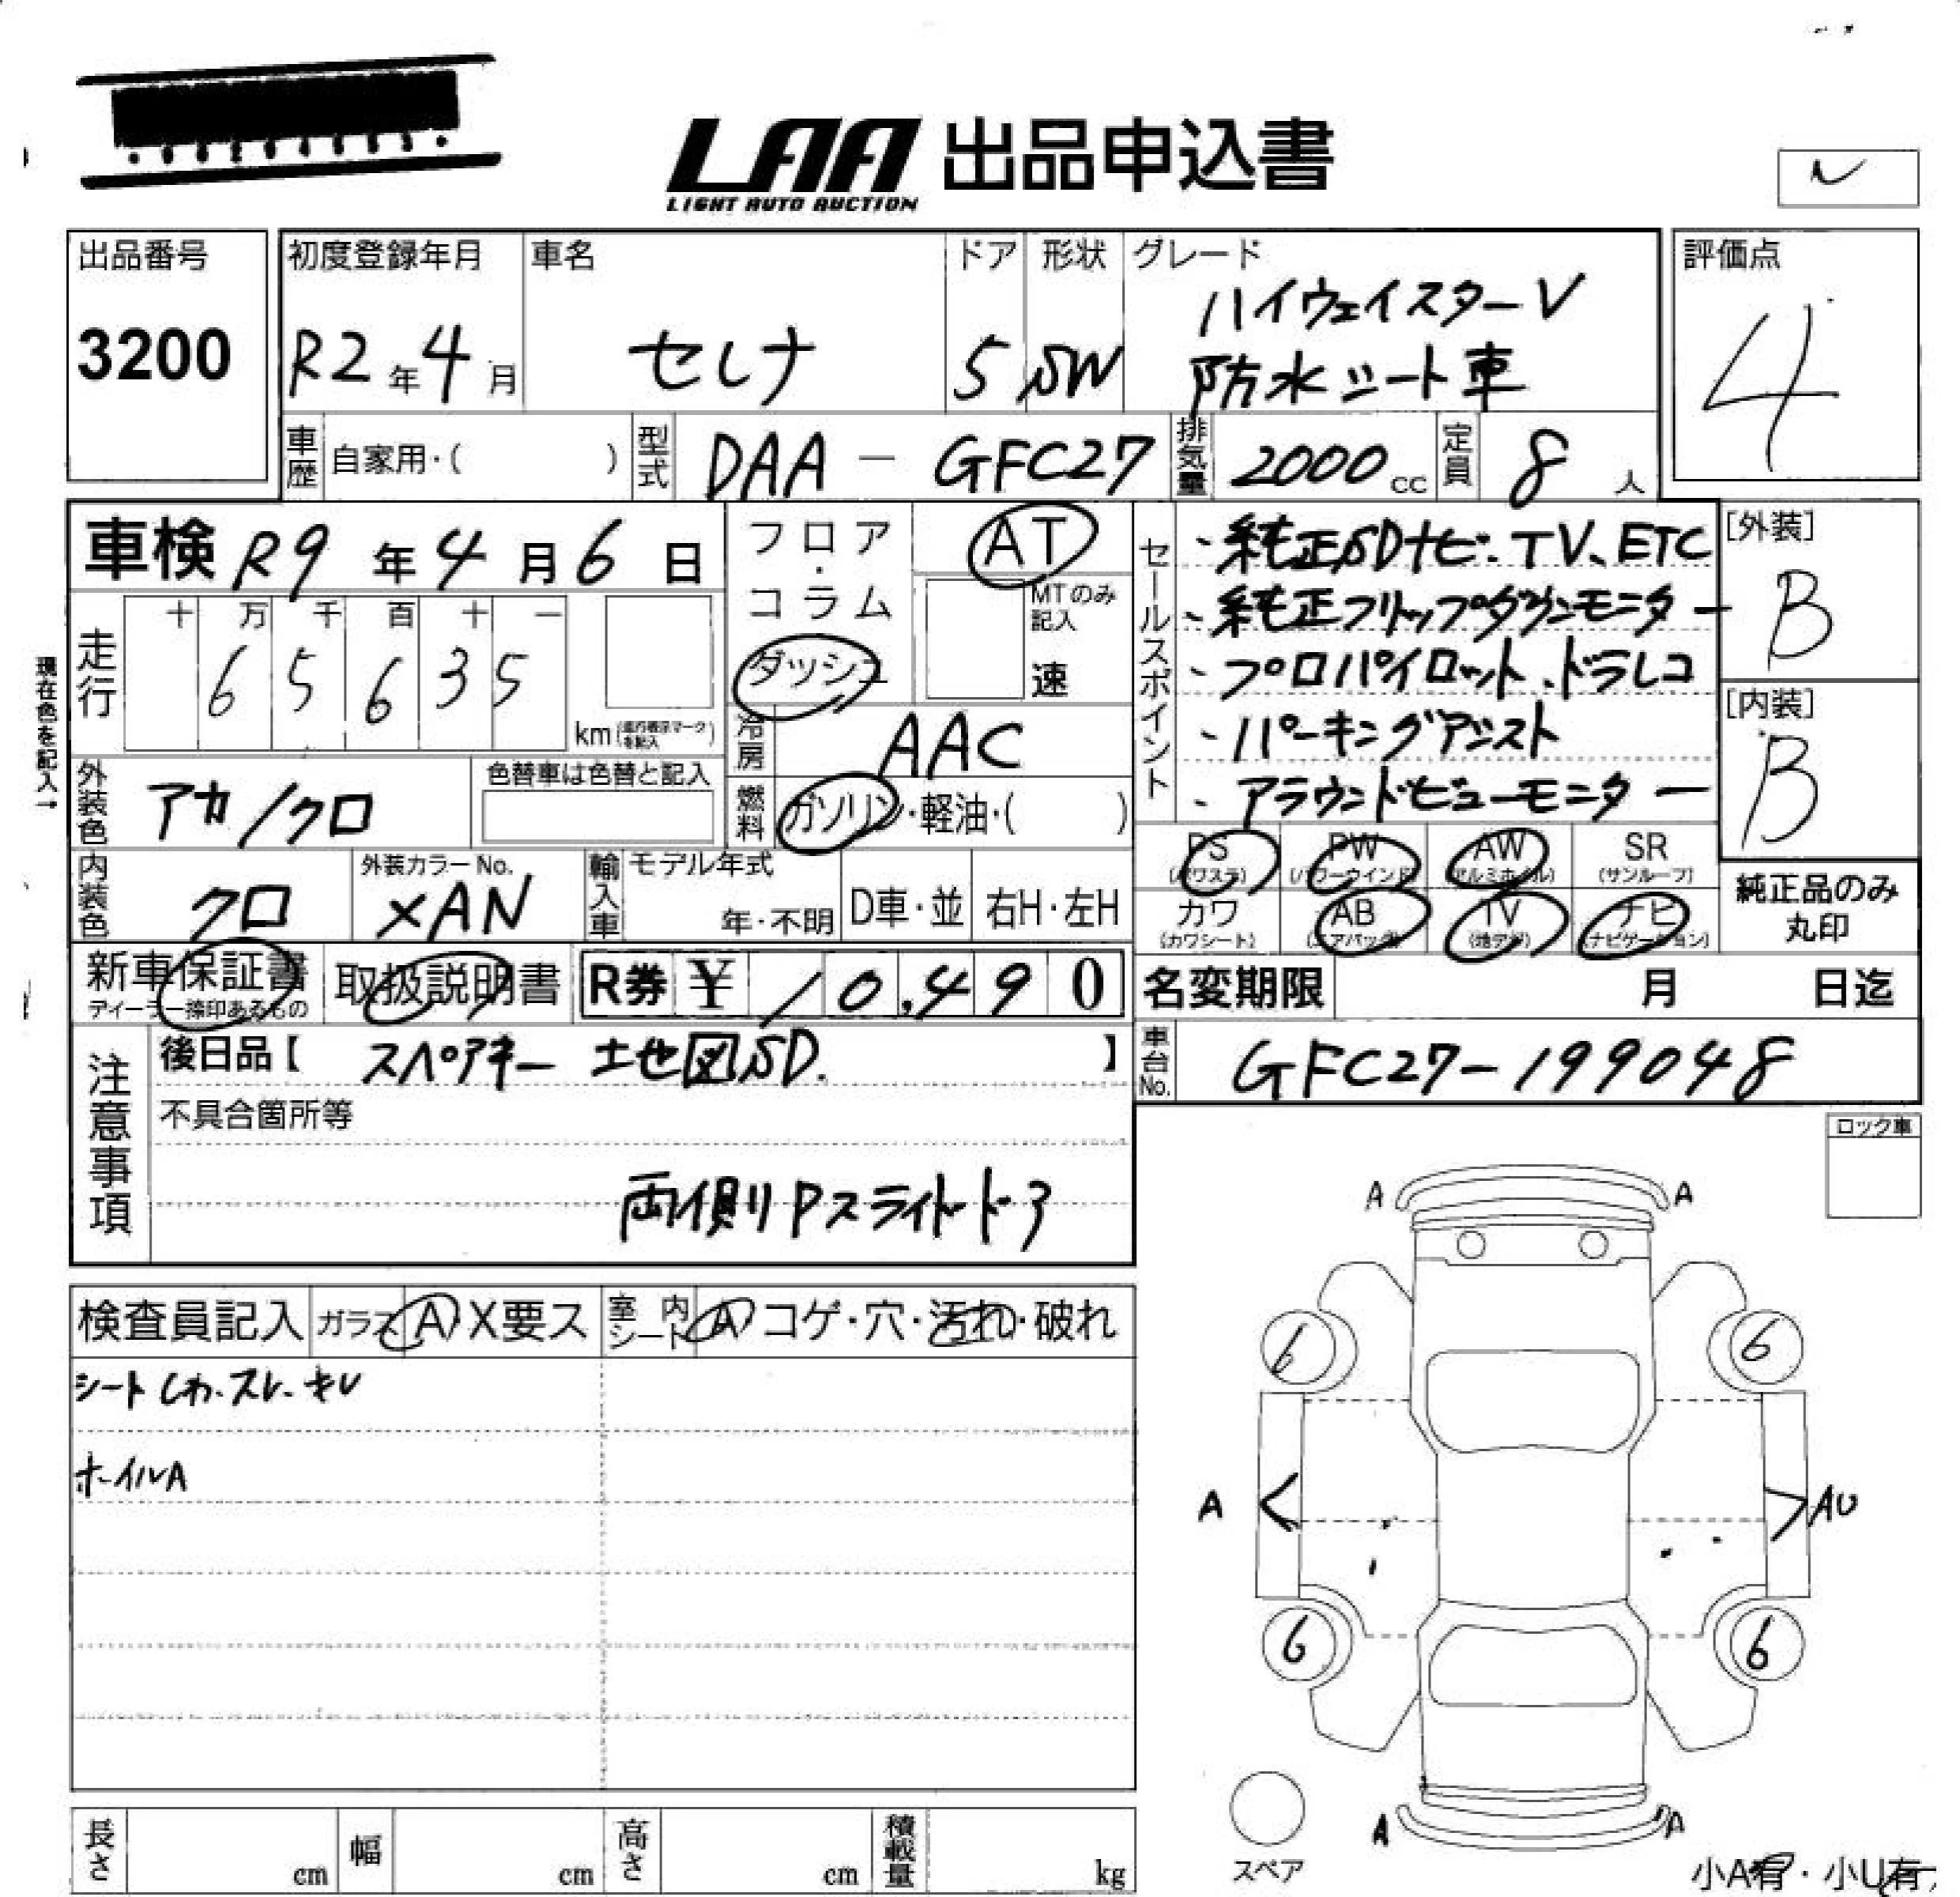 LAA 出品申込書
LIGHT AUTO AUCTION
出品番号
3200
初度登録年月
R2年4月
車名
セレナ
ドア
5
形状
SW
グレード
ハイウェイスターV
防水シート車
評価点
4
車歴 自家用・( )
型式 DAA - GFC27
排気量 2000cc
定員 8人
車検 R9年4月6日
走行 十 万 千 百 十 一
6 5 6 3 5
km
現在色を記入→
フロア・コラム
ダッシュ
AT
MTのみ記入
速
冷房 AAC
燃料 ガソリン・軽油・( )
セールスポイント
・純正SDナビ、TV、ETC
・純正フリップダウンモニター
・プロパイロット、ドラレコ
・パーキングアシスト
・アラウンドビューモニター
[外装]
B
[内装]
B
外装色 アカ/クロ
色替車は色替と記入
内装色 クロ
外装カラーNo.
XAN
輸入車 モデル年式
年・不明 D車・並 右H・左H
PS (パワステ) PW (パワーウインド) AW (アルミホイル) SR (サンルーフ)
カワ (カワシート) AB (エアバッグ) TV (地デジ) ナビ (ナビゲーション)
純正品のみ丸印
新車保証書
ディーラー捺印あるもの
取扱説明書
R券 ¥ 10,490
名変期限 月 日迄
車台No. GFC27-199048
注意事項
後日品【 スペアキー 地図SD. 】
不具合箇所等
両側Pスライドドア
ロック車
検査員記入 ガラス A X要ス 室内シート A コゲ・穴・汚れ・破れ
シートしわ、スレ、キレ
ホイルA
A A
6 6
A AU
6 6
A A
スペア
小A有・小U有
長さ cm 幅 cm 高さ cm 積載量 kg